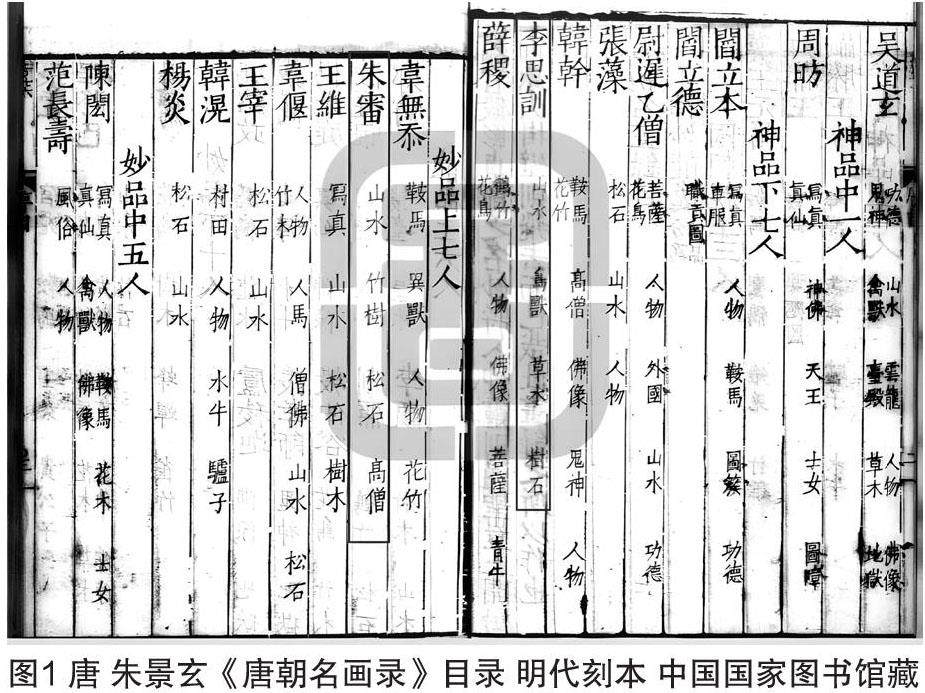 吳道玄 功德 鬼神 山水 禽獸 雲龍 臺殿 人物 草木 佛像 地獄
神品中一人
周昉 寫真 真仙 神佛 天王 士女 圖障
神品下七人
閻立本 寫真 車服 人物 鞍馬 圖簇 功德
閻立德 職貢圖
尉遲乙僧 菩薩 花鳥 人物 外國 山水 功德
張藻 松石 山水 人物
韓幹 鞍馬 花竹 高僧 佛像 鬼神 人物
李思訓 山水 鳥獸 草木 樹石
薛稷 鶴竹 花鳥 人物 佛像 菩薩 青牛
妙品上七人
韋無忝 鞍馬 異獸 人物 花竹
朱審 山水 竹樹 松石 高僧
王維 寫真 山水 松石 樹木
韋偃 人物 竹木 人馬 僧佛 山水 松石
王宰 松石 山水
韓滉 村田 人物 水牛 驢子
楊炎 松石 山水
妙品中五人
陳閎 寫真 真仙 人物 禽獸 鞍馬 佛像 花木 士女
范長壽 風俗 人物
图1 唐 朱景玄《唐朝名画录》目录 明代刻本 中国国家图书馆藏